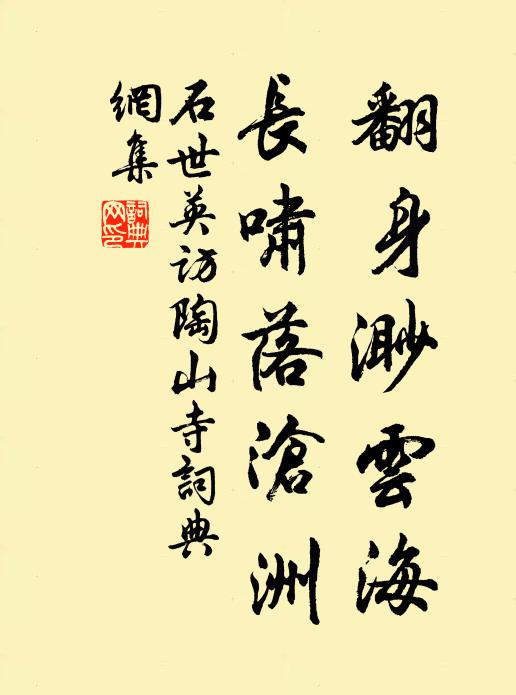 翻身渺雲海
長嘯落滄洲
石世英訪陶山寺詞典
網集
詞典
网印